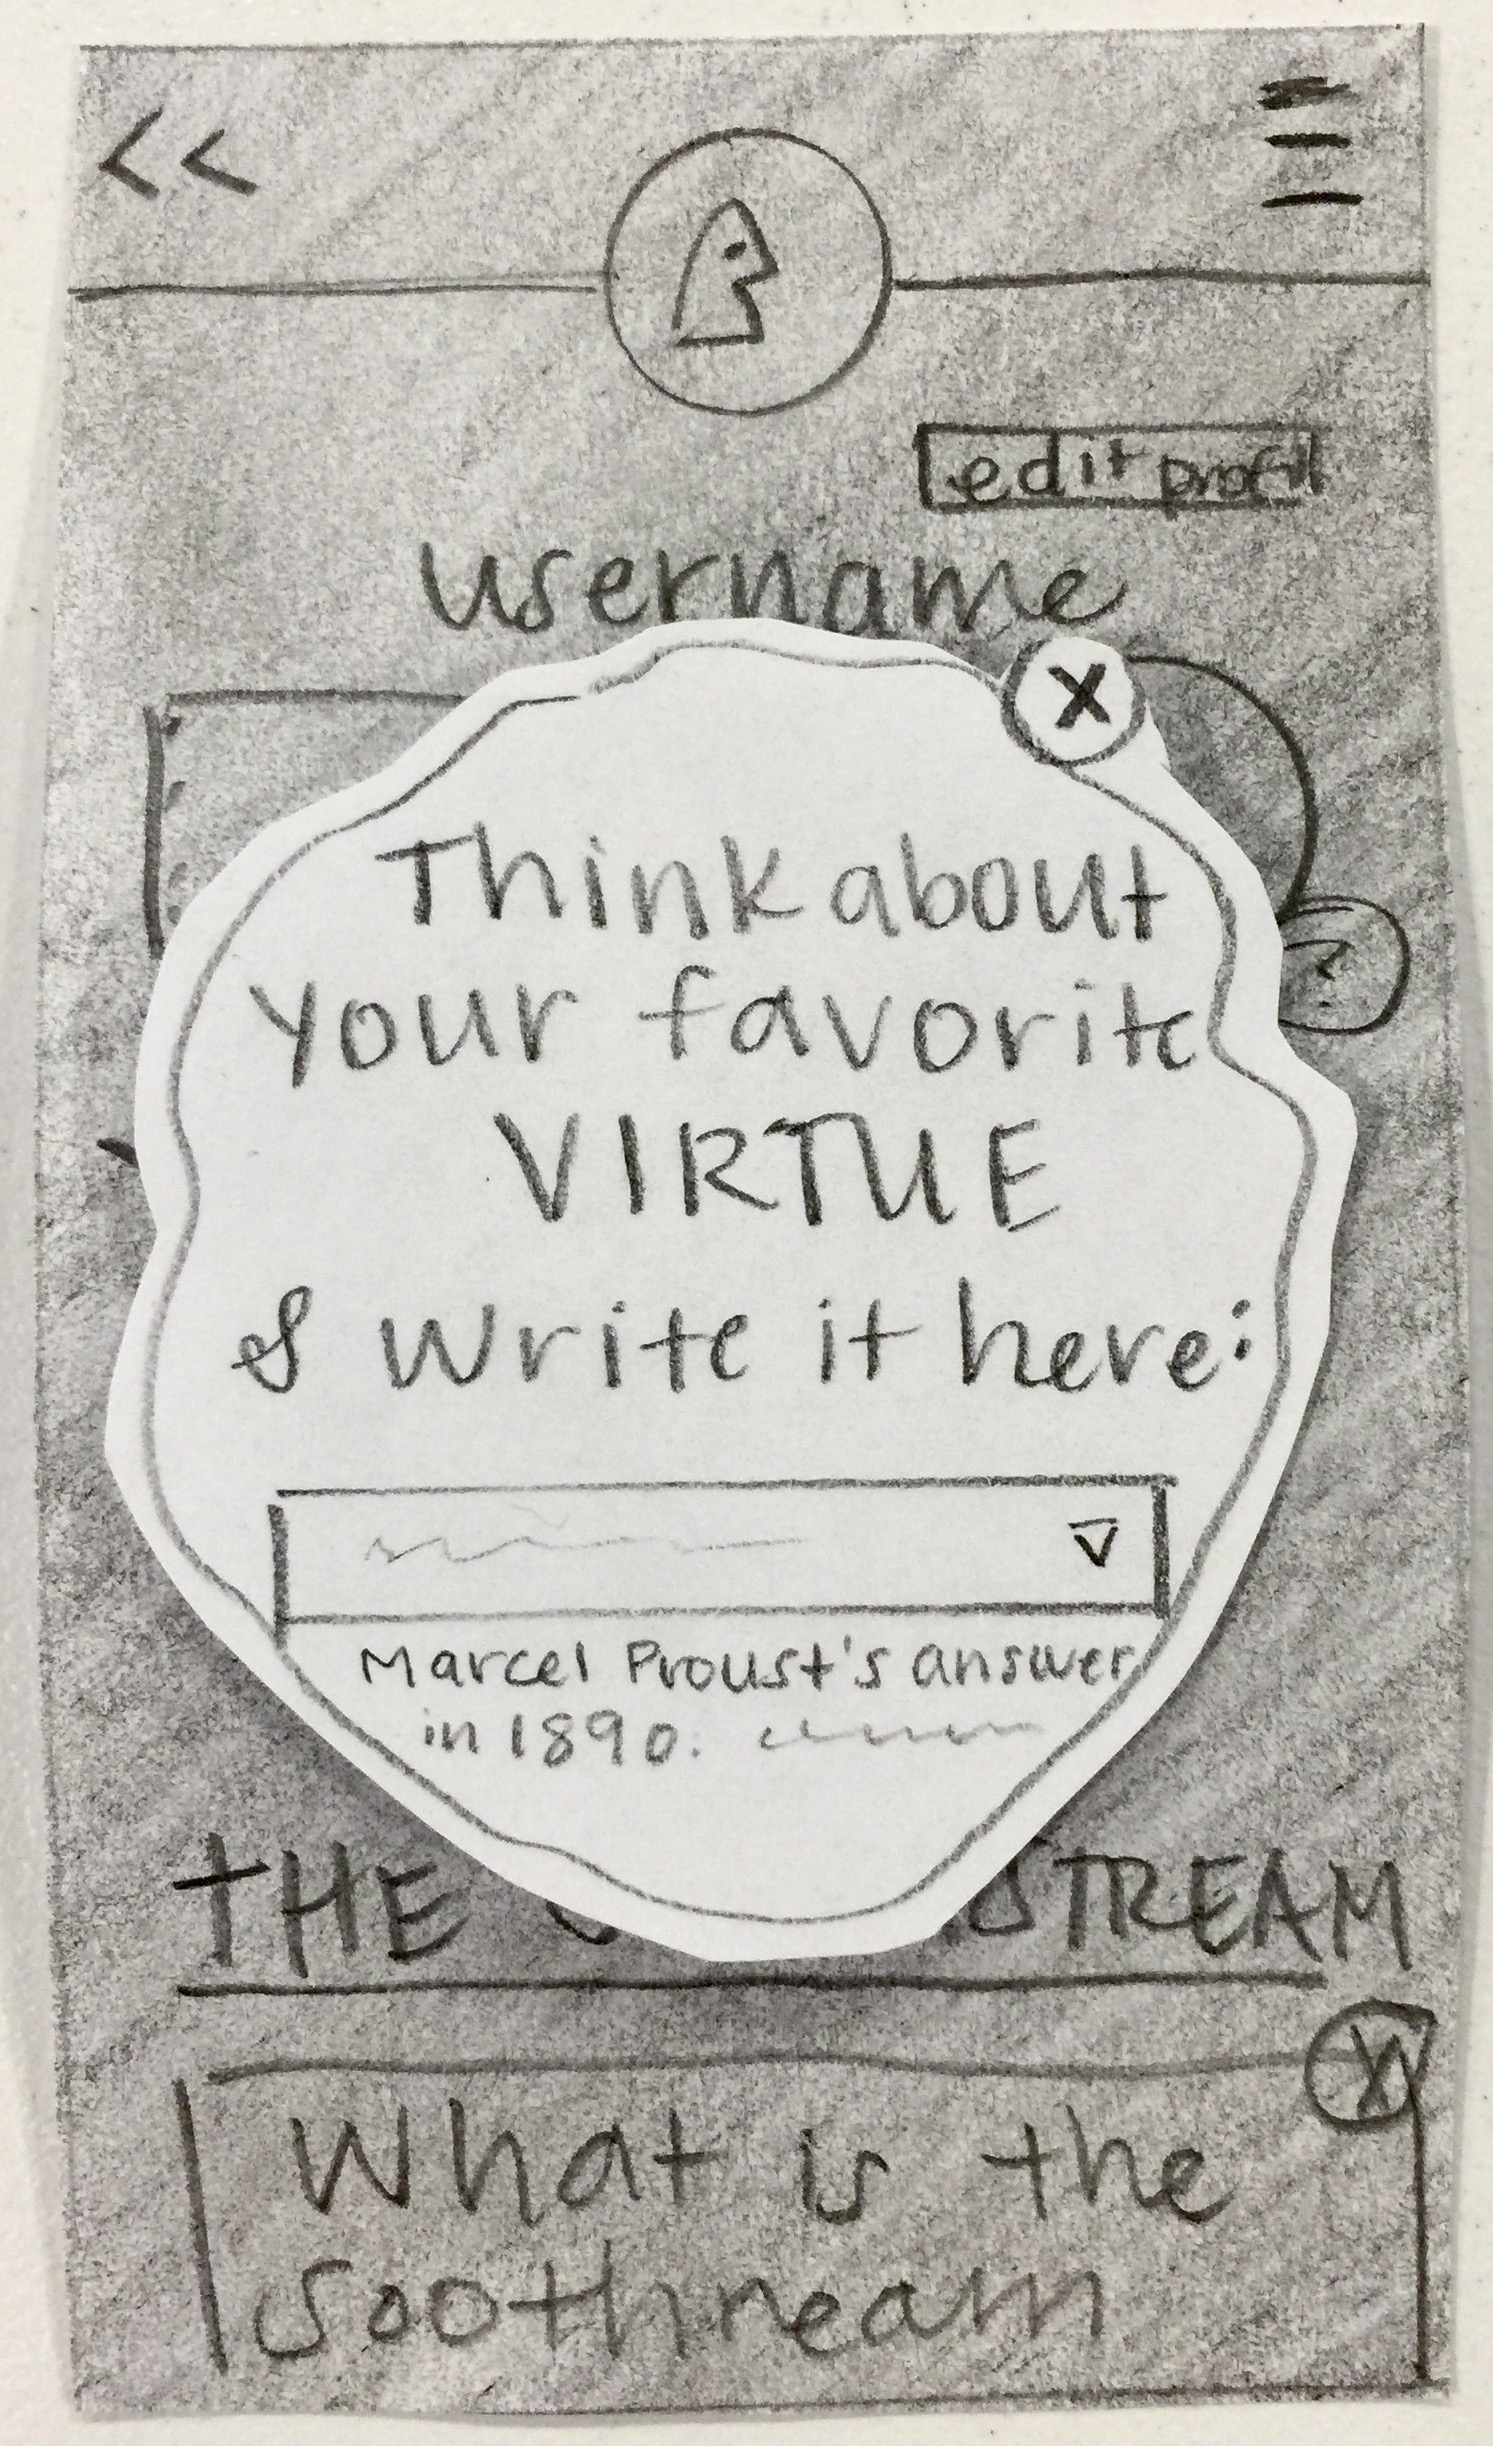 <<
edit profil
username
X
Think about
your favorite
?
VIRTUE
& write it here:
Marcel Proust's answer
in 1890.
THE S STREAM
X
What is the
soothream